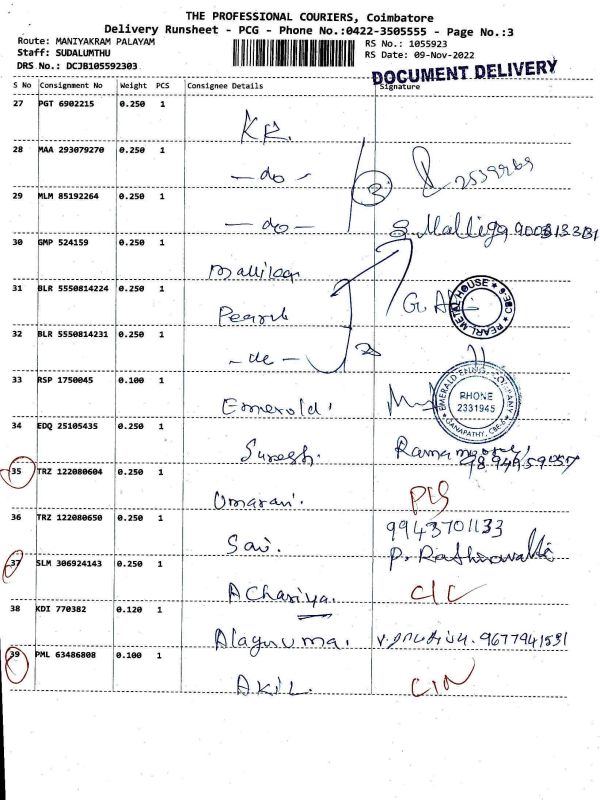 THE PROFESSIONAL COURIERS, Coimbatore
Delivery Runsheet - PCG - Phone No.:0422-3505555 - Page No.:3
Route: MANIYAKRAM PALAYAM
Staff: SUDALUMTHU
DRS No.: DCJB105592303
RS No.: 1055923
RS Date: 09-Nov-2022
DOCUMENT DELIVERY
S No Consignment No Weight PCS Consignee Details Signature
27 PGT 6902215 0.250 1
KR.
28 MAA 293079270 0.250 1
- do -
29 MLM 85192264 0.250 1
- do -
S. Malliga
30 GMP 524159 0.250 1
31 BLR 5550814224 0.250 1
PEARL METAL HOUSE ★ CBE-6 ★
32 BLR 5550814231 0.250 1
- do -
33 RSP 1750045 0.100 1
Emerold.
EMERALD ENGG. COMPANY
PHONE
2331945
GANAPATHY, CBE-6
34 EDQ 25105435 0.250 1
Suresh.
35 TRZ 122080604 0.250 1
Umarani.
36 TRZ 122080650 0.250 1
9943701133
Sai.
37 SLM 306924143 0.250 1
AChariya.
38 KDI 770382 0.120 1
Alaguruma.
9677941591
39 PML 63486808 0.100 1
AKIL.